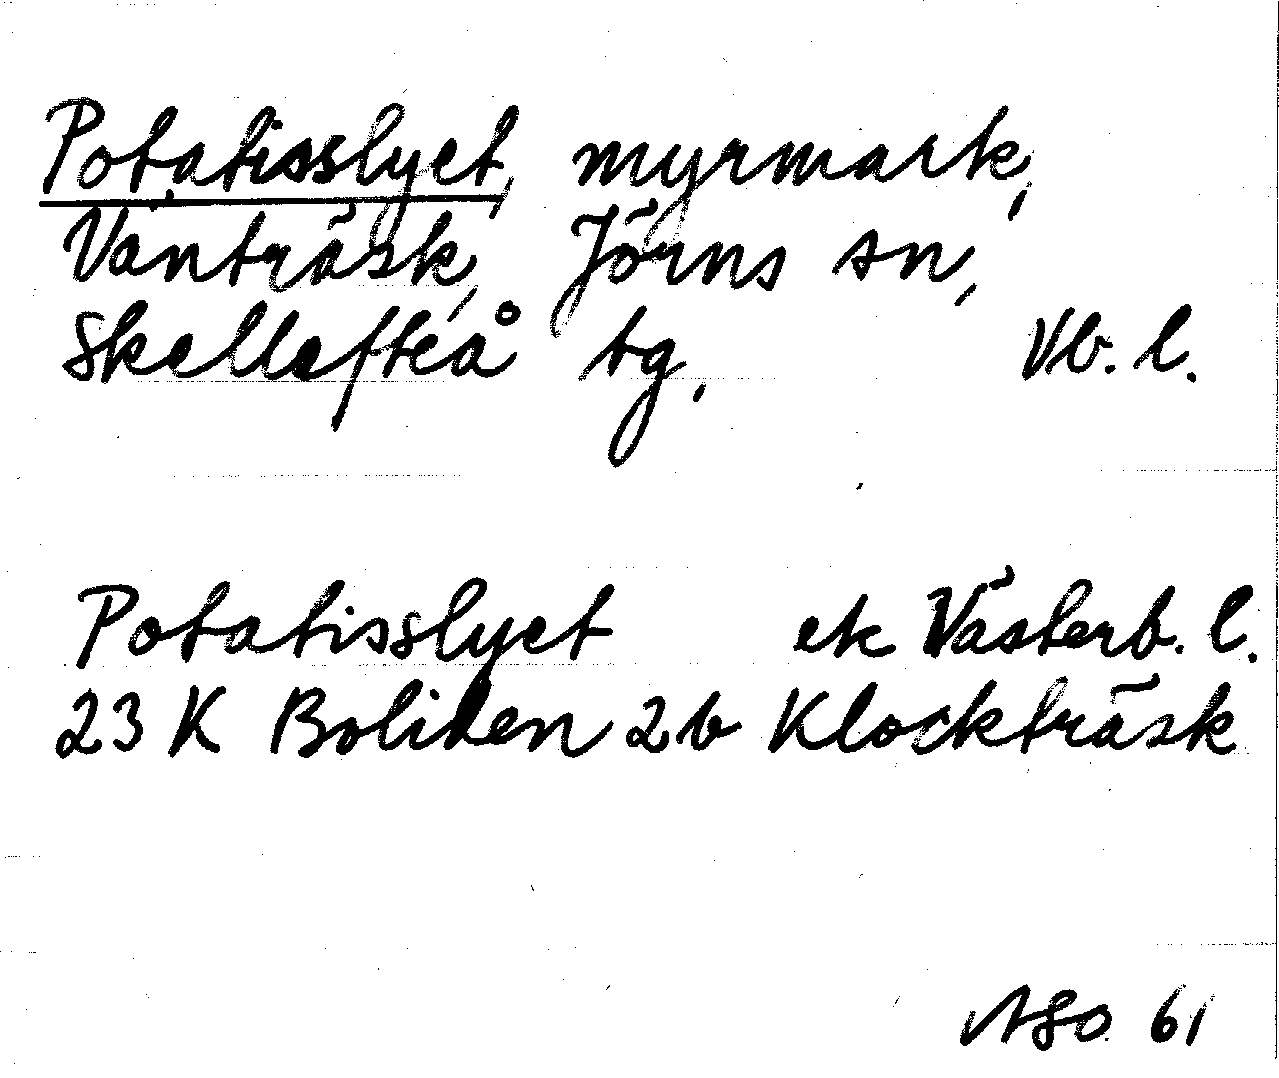 Potatisslyet, myrmark,
Vänträsk, Jörns sn,
Skellefteå tg. Vb. l.
Potatisslyet ek Västerb. l.
23 K Boliden 2b Klockträsk
ASO 61